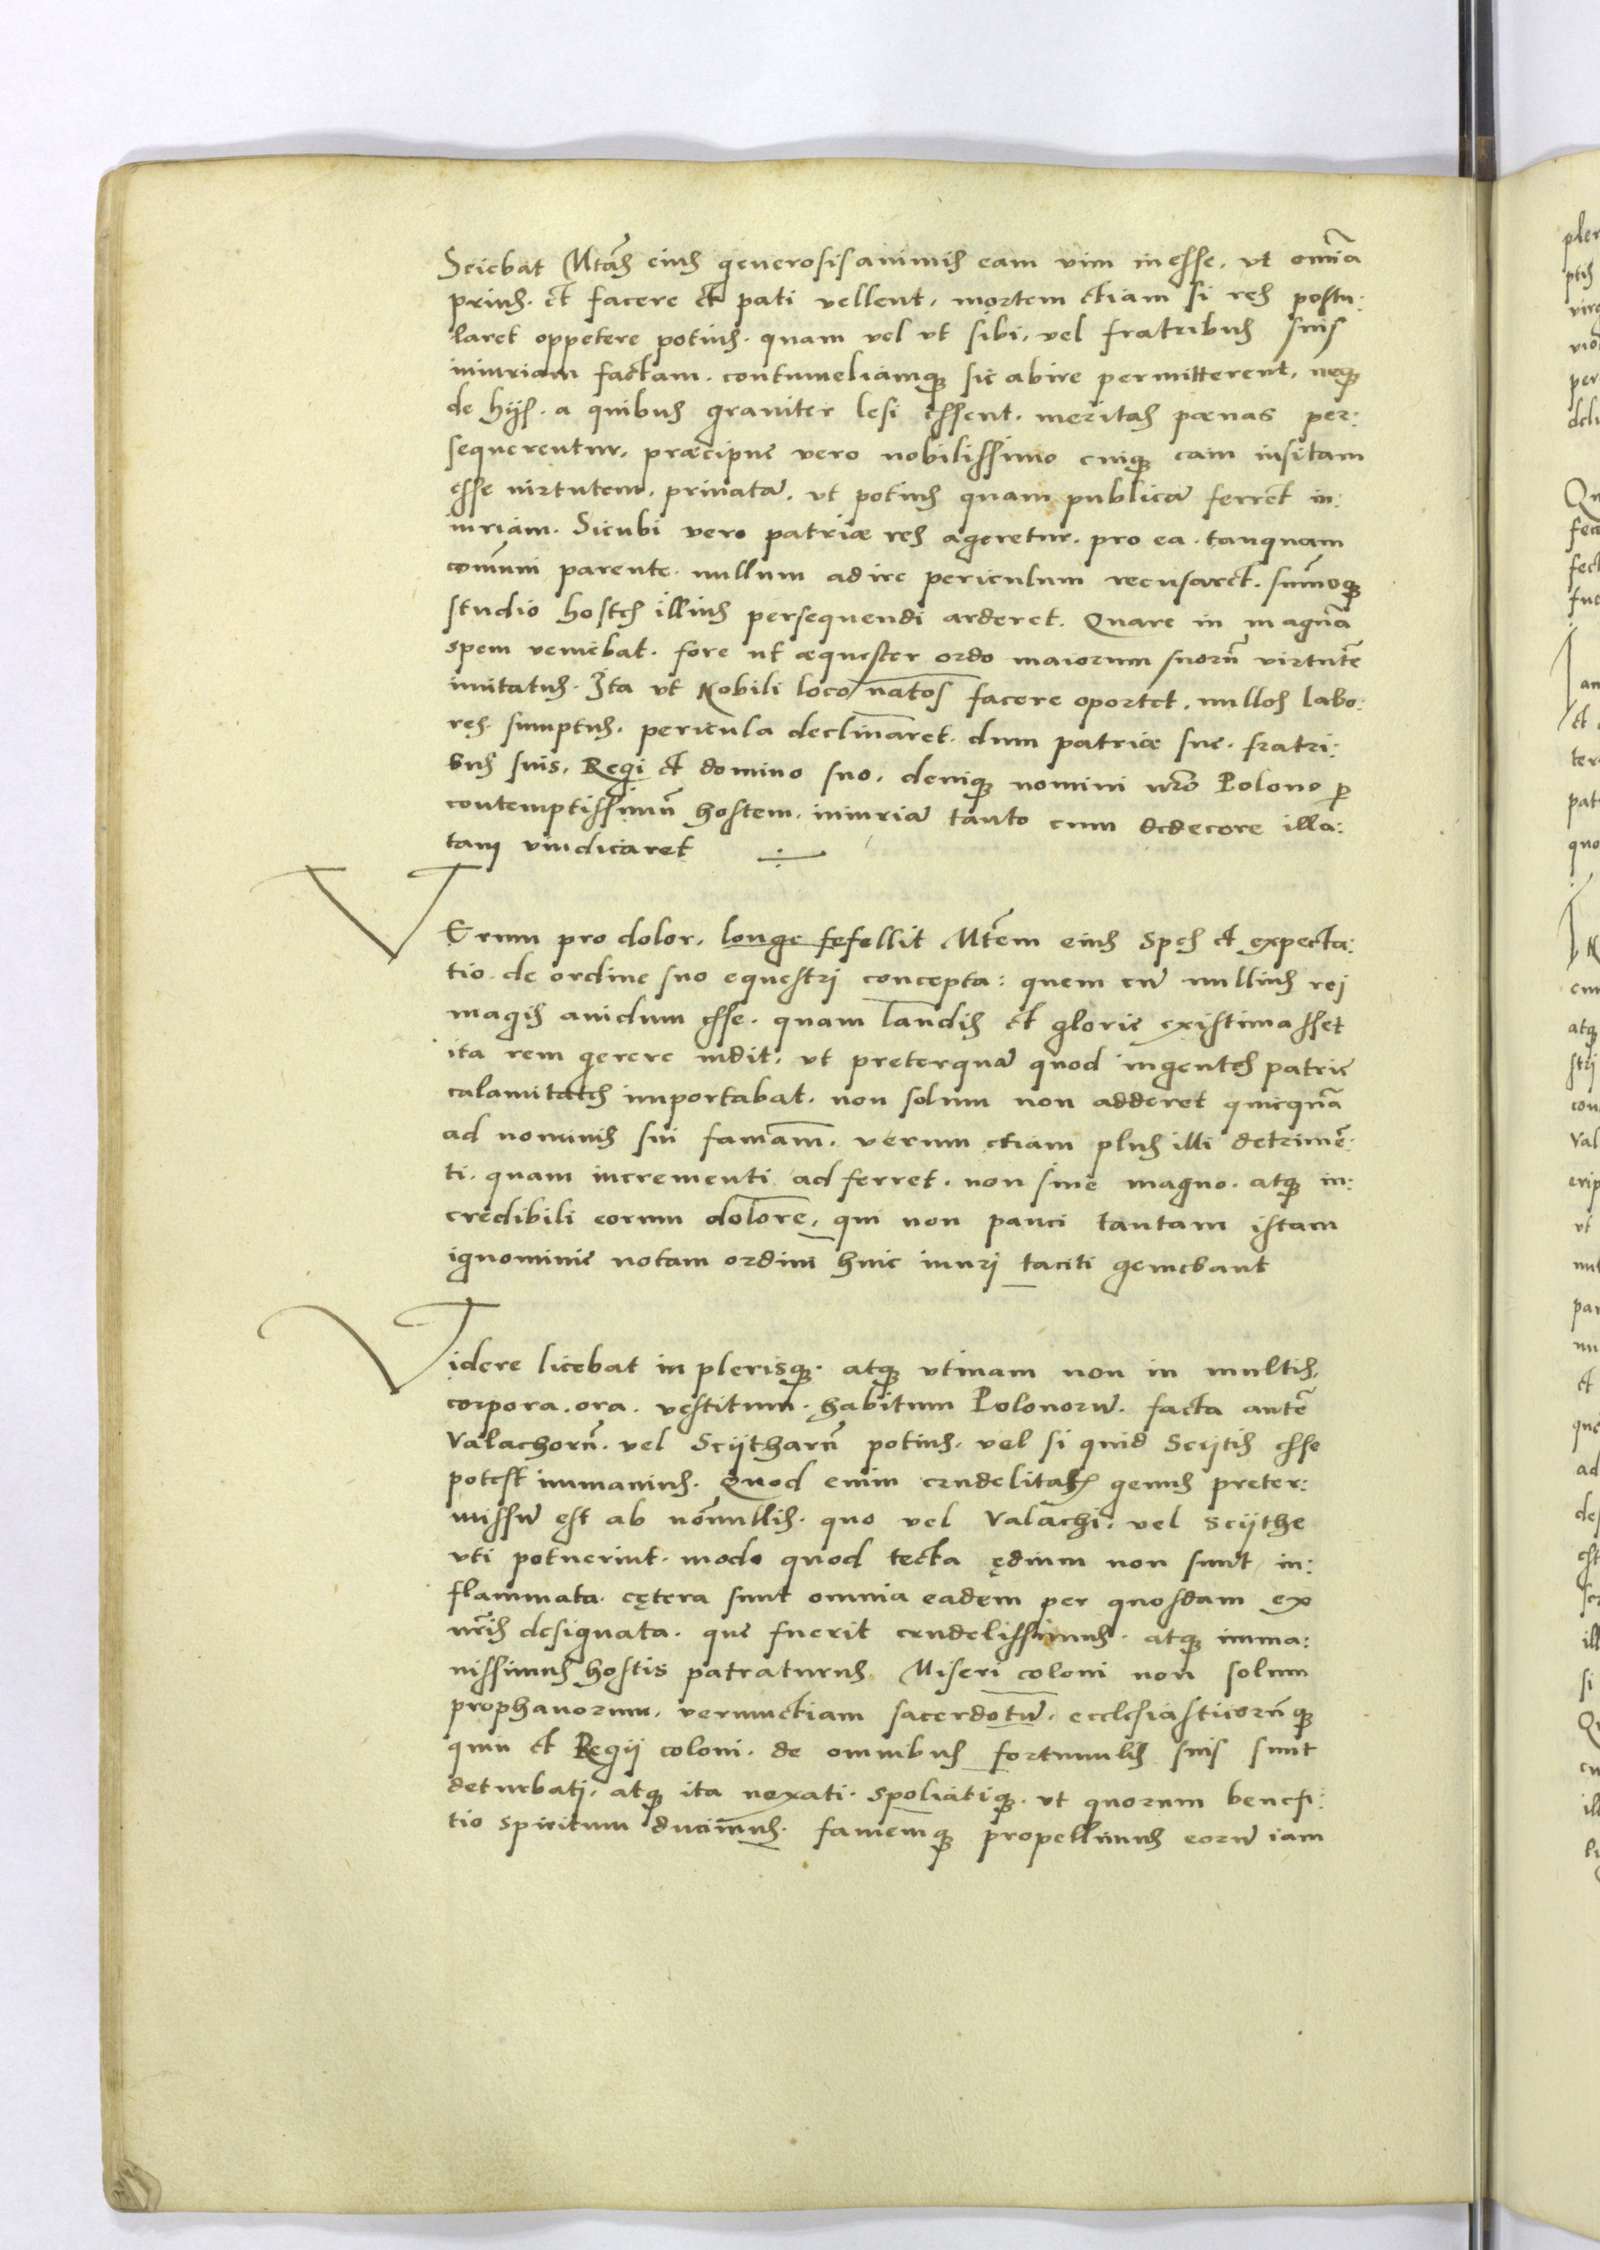 Sciebat Mtas eius generosis animis eam vim in esse, vt omnia
prius. et facere et pati vellent, mortem etiam si res postu:
laret oppetere potius. quam vel vt sibi, vel fratribus suis
iniuriam factam. contumeliamq sic abire permitterent, neq
de hijs. a quibus graviter lesi essent. meritas pœnas per:
sequerentur, præcipue vero nobilissimo cuiq eam insitam
esse uirtutem, priuatā, vt potius quam publicā ferret in:
iuriam. Sicubi vero patriæ res ageretur. pro ea. tanquam
com̄uni parente. nullum adire periculum recusaret. sum̄oq
studio hostes illius persequendi arderet. Quare in magnā
spem veniebat. fore ut æquester ordo maiorum suorū virtutē
imitatus. Ita vt Nobili loco natos facere oportet, nullos labo:
res. sumptus. pericula declinaret. dum patriæ sue. fratri:
bus suis, Regi et domino suo, deniq nomini nr̄o Polono p
contemptissimū hostem, iniuriā tanto cum dedecore illa:
tam vindicaret
VErum pro dolor, longe fefellit Mtem eius spes et expecta:
tio. de ordine suo equestri concepta: quem cū nullius rej
magis auidum esse. quam laudis et glorie existimasset
ita rem gerere uidit, vt preterquā quod ingentes patrie
calamitates importabat. non solum non adderet quicquā
ad nominis sui famam. verum etiam plus illi detrimē:
ti. quam incrementi adferret. non sine magno. atq in:
credibili eorum dolore, qui non pauci tantam istam
ignominie notam ordini huic inurj taciti gemebant
Videre licebat in plerisq. atq vtinam non in multis,
corpora. ora. vestitum. habitum Polonorū. facta autē
Valachorū. vel Scijtharū potius. vel si quid Scijtis esse
potest inmanius. Quod enim crudelitatis genus preter:
missū est ab nōnullis. quo vel Valachi, vel Scijthe
vti potuerint. modo quod tecta ędium non sunt in:
flammata. cętera sunt omnia eadem per quosdam ex
nr̄is designata. que fuerit crudelissimus. atq imma:
nissimus hostis patraturus. Miseri coloni non solum
prophanorum, verumetiam sacerdotū, ecclesiasticorūq
quin et Regij coloni. de omnibus fortunulis suis sunt
deturbatj, atq ita uexati. spoliatiq. vt quorum benefi:
tio spiritum ducimus. famemq propellimus eorū iam